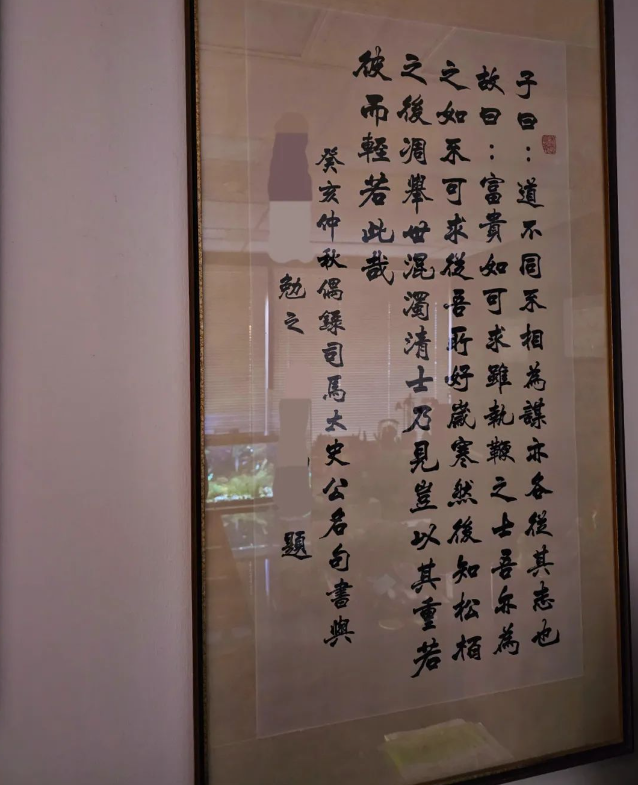 子曰：道不同不相為謀亦各從其志也
故曰：富貴如可求雖執鞭之士吾亦為
之如不可求從吾所好歲寒然後知松栢
之後凋舉世混濁清士乃見豈以其重若
彼而輕若此哉
癸亥仲秋偶錄司馬太史公名句書與
勉之
題